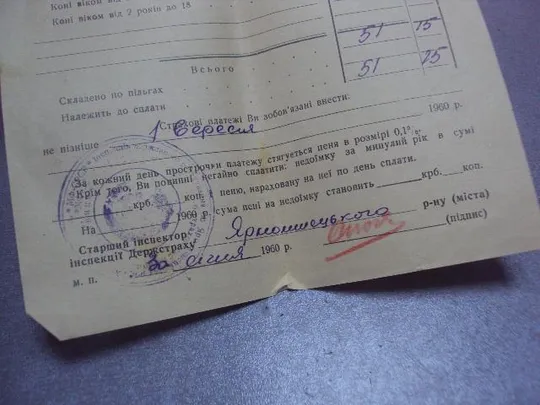 Коні віком від
Коні віком від 2 років до 18
51 75
Всього 51 75
Складено по пільгах
Належить до сплати
Страхові платежі Ви зобов'язані внести:
не пізніше 1 Вересня 1960 р.
За кожний день прострочки платежу стягується пеня в розмірі 0,1%.
Крім того, Ви повинні негайно сплатити: недоїмку за минулий рік в сумі
крб. коп. і пеню, нараховану на неї по день сплати.
На 1960 р. сума пені на недоїмку становить крб. коп.
Старший інспектор
інспекції Держстраху Ярмолинецького р-ну (міста)
м. п. 22 січня 1960 р. (підпис)